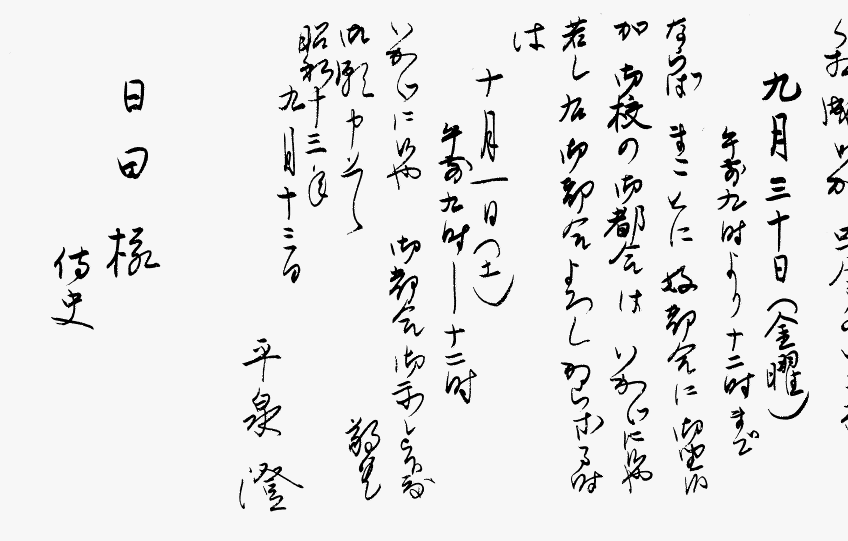 九月三十日（金曜）
午前九時より十二時まで
ならば まことに好都合に御座候
か 御校の御都合は いかゞに候や
若し右御都合よろしからざる時
は
十月一日（土）
午前九時―十二時
いかゞに候や 御都合御示し
御願申上候 敬具
昭和十三年
九月十三日
平泉 澄
日田様
侍史